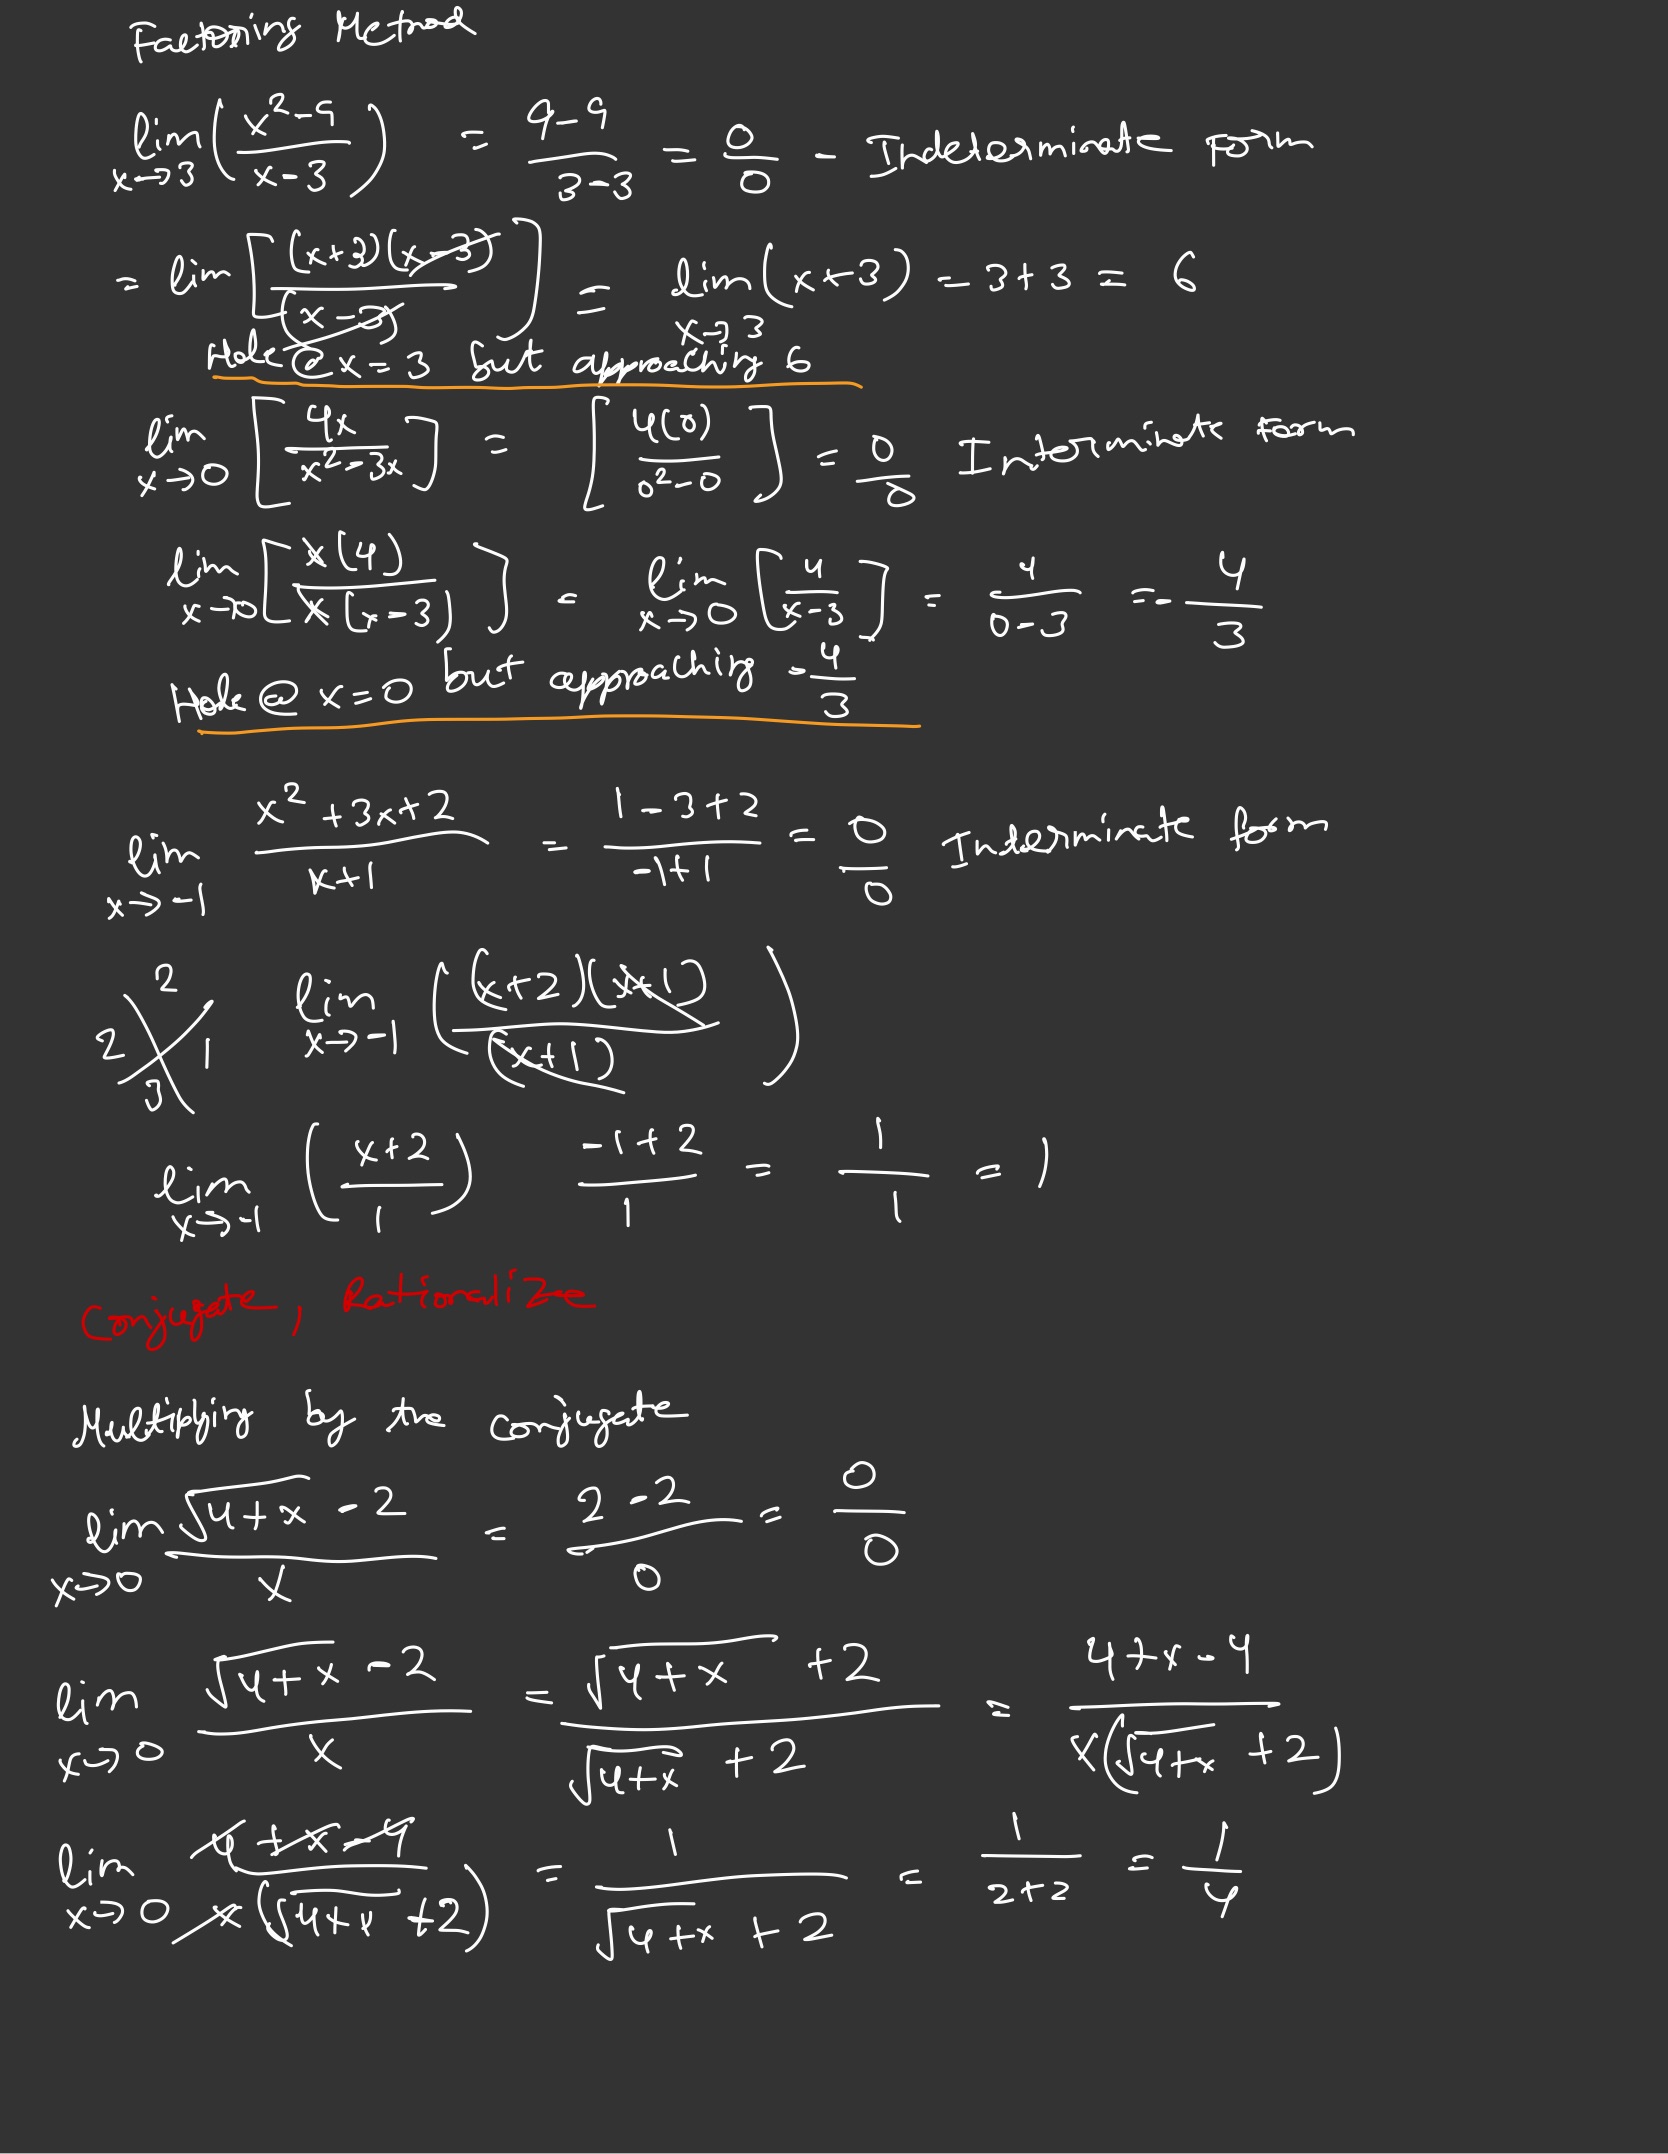 Factoring Method
lim x→3 (x²-9 / x-3) = 9-9 / 3-3 = 0/0 - Indeterminate Form
= lim [(x+3)(x-3) / (x-3)] = lim x→3 (x+3) = 3+3 = 6
Hole @ x=3 but approaching 6
lim x→0 [4x / x²-3x] = [4(0) / 0²-0] = 0/0 Interminate Form
lim x→0 [x(4) / x(x-3)] = lim x→0 [4 / x-3] = 4 / 0-3 = -4/3
Hole @ x=0 but approaching -4/3
lim x→-1 x²+3x+2 / x+1 = 1-3+2 / -1+1 = 0/0 Inderminate form
2 2 1 3 lim x→-1 ((x+2)(x+1) / (x+1))
lim x→-1 (x+2 / 1) -1+2 / 1 = 1/1 = 1
Conjugate, Rationalize
Multiplying by the conjugate
lim x→0 √4+x - 2 / x = 2-2 / 0 = 0/0
lim x→0 √4+x - 2 / x = √4+x +2 / √4+x +2 = 4+x-4 / x(√4+x +2)
lim x→0 4+x-4 / x(√4+x +2) = 1 / √4+x +2 = 1 / 2+2 = 1/4